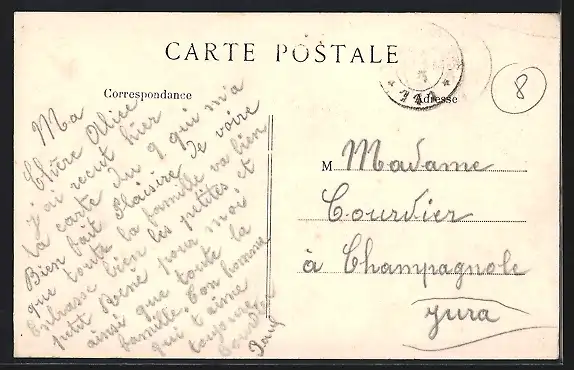 CARTE POSTALE
Correspondance
Adresse
8
Ma
Chère Alice
j'ai recut hier
ta carte du 9 qui m'a
Bien fait Plaisire de voire
que toute la famille va bien
Enbrasse bien les petites et
petit René pour moi
ainsi que toute la
famille. Ton homme
qui t'aime
toujours
Courdier
M Madame
Courdier
à Champagnole
Jura